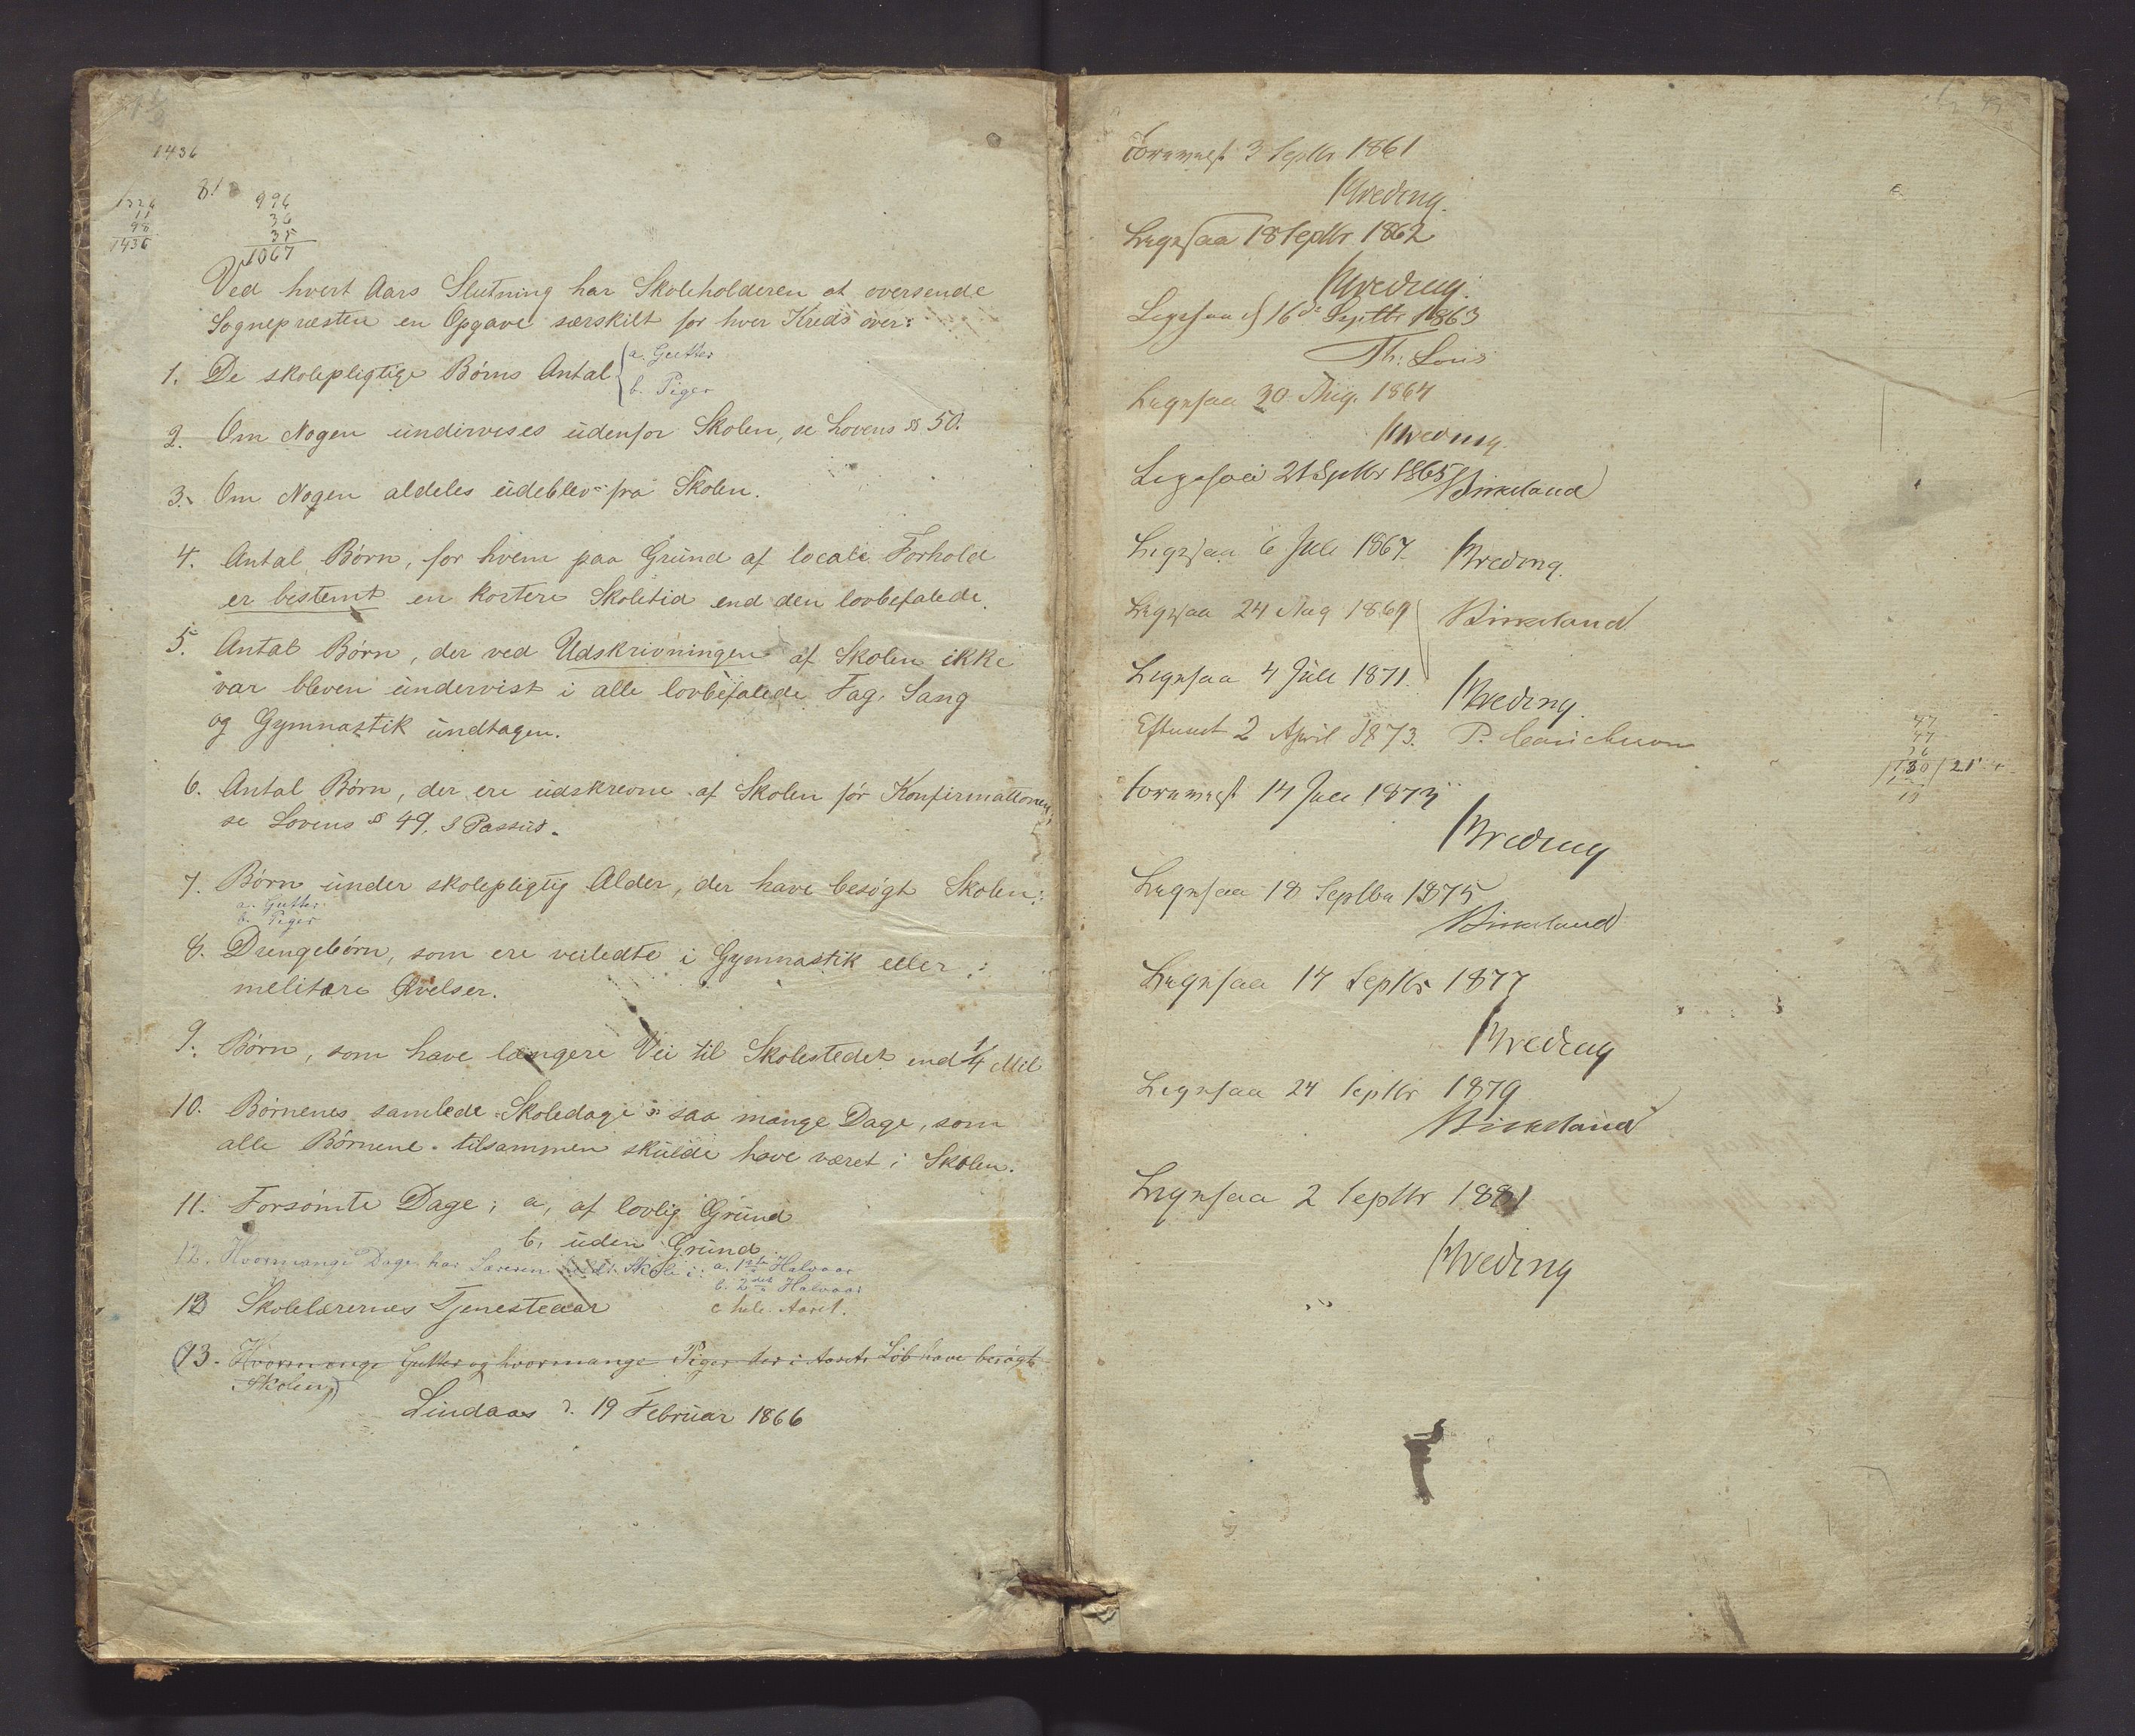 1436
1324
11
98
1436
81
996
36
35
1067
Ved hvert Aars Slutning har Skoleholderen at oversende
Sognepræsten en Opgave særskilt for hver Kreds over:
1. De skolepligtige Børns Antal { a. Gutter
b. Piger
2. Om Nogen undervises udenfor Skolen, se Lovens § 50.
3. Om Nogen aldeles udeblev fra Skolen.
4. Antal Børn, for hvem paa Grund af locale Forhold
er bestemt en kortere Skoletid end den lovbefalede.
5. Antal Børn, der ved Udskrivningen af Skolen ikke
var bleven undervist i alle lovbefalede Fag, Sang
og Gymnastik undtagen.
6. Antal Børn, der ere udskrevne af Skolen før Konfirmationen,
se Lovens § 49, 3 Passus.
7. Børn under skolepligtig Alder, der have besøgt Skolen:
a. Gutter
b. Piger
8. Drengebørn, som ere veiledte i Gymnastik eller
melitære Øvelser.
9. Børn, som have længere Vei til Skolestedet end 1/4 Mil
10. Børnenes samlede Skoledage o: saa mange Dage, som
alle Børnene tilsammen skulde have været i Skolen.
11. Forsømte Dage; a, af lovlig Grund
b, uden Grund
12. Hvormange Dage har Læreren holdt Skole i: a. 1ste Halvaar
b. 2det Halvaar
c. hele Aaret.
13 Skolelærernes Tjenesteaar
(13. Hvormange Gutter og hvormange Piger der i Aarets Løb have besøgt
Skolen)
Lindaas d. 19 Februar 1866
Foreviist 3 Septbr 1861
Kreding
Ligesaa 18 Septbr 1862
Kreding
Ligesaa d 16de Septbr 1863
Th: Lous
Ligesaa 30 Aug. 1864
Kreding
Ligesaa 21 Septbr 1865 Birkeland
Ligesaa 6 Juli 1867 Kreding
Ligesaa 24 Aug 1869 Birkeland
Ligesaa 4 Juli 1871. Kreding
Efterseet 2 April 1873. P.
Foreviist 14 Juli 1873
Kreding
Ligesaa 18 Septbr 1875
Birkeland
Ligesaa 14 Septbr 1877
Kreding
Ligesaa 24 Septbr 1879
Birkeland
Ligesaa 2 Septbr 1881
Kreding
47
47
36
130 | 21